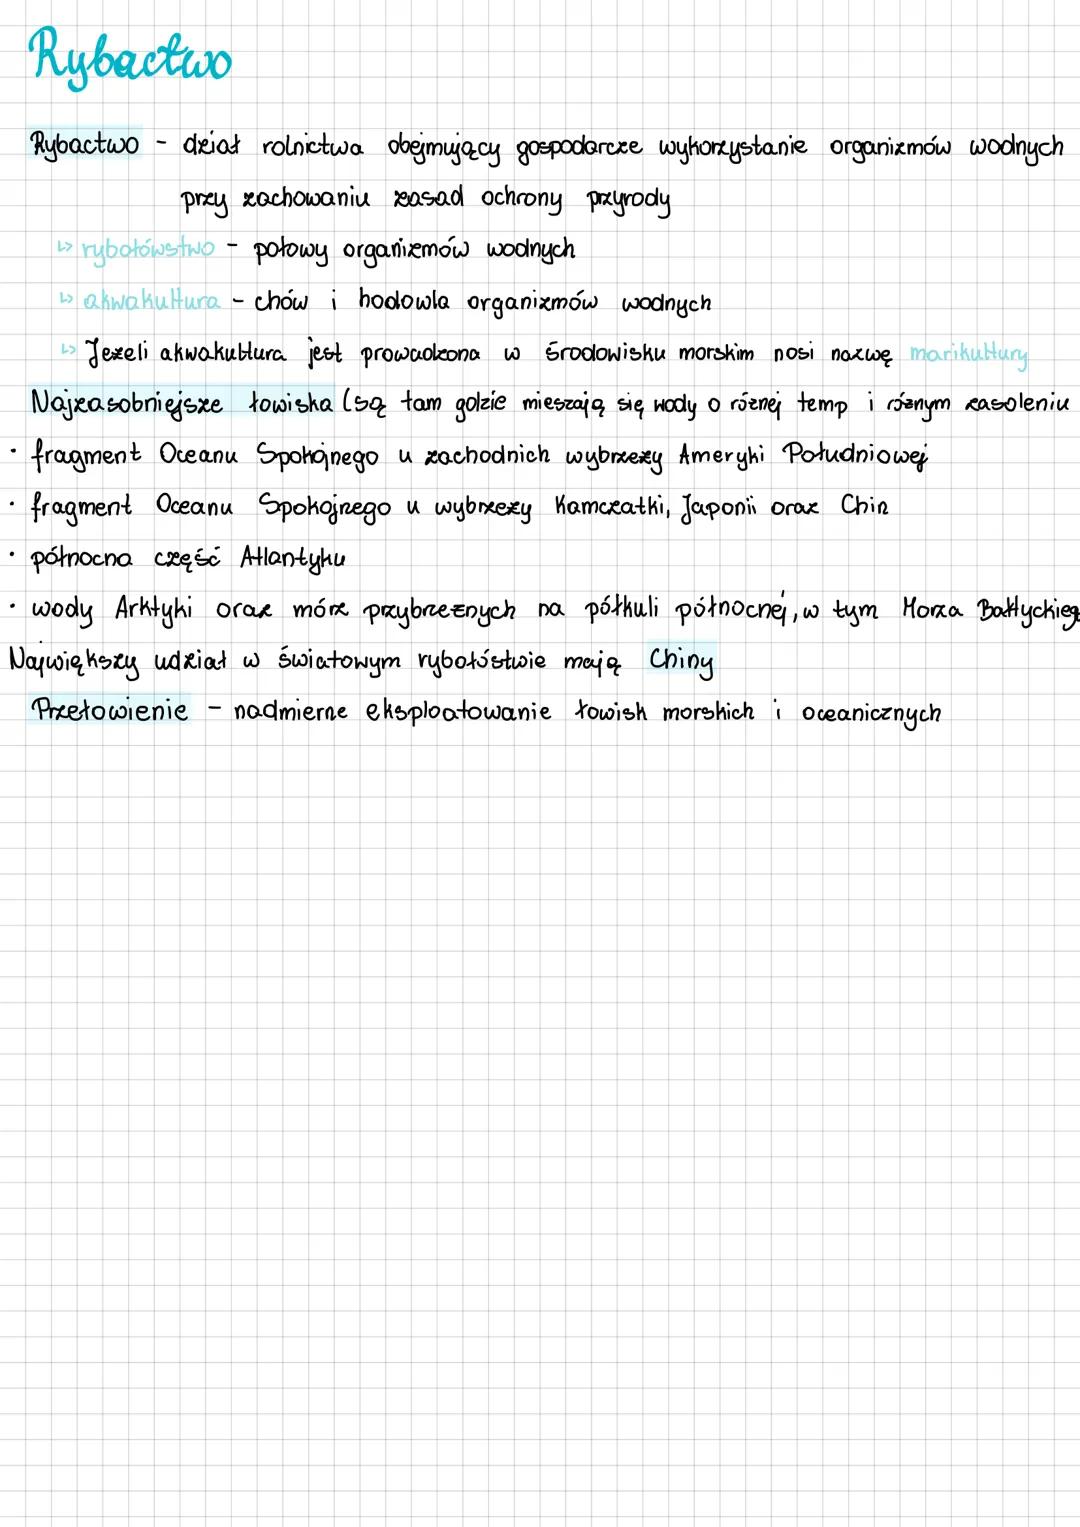 Rybactwo
Rybactwo - dział rolnictwa obejmujący gospodarcze wykorzystanie organizmów wodnych
przy zachowaniu zasad ochrony przyrody
↳ rybołówstwo - połowy organizmów wodnych
↳ akwakultura - chów i hodowla organizmów wodnych
↳ Jeżeli akwakultura jest prowadzona w środowisku morskim nosi nazwę marikultury
Najzasobniejsze łowiska (są tam gdzie mieszają się wody o różnej temp i róznym zasoleniu
· fragment Oceanu Spokojnego u zachodnich wybrzeży Ameryki Południowej
· fragment Oceanu Spokojnego u wybrzeży Kamczatki, Japonii oraz Chin
· północna część Atlantyku
· wody Arktyki oraz mórz przybrzeżnych na półkuli północnej, w tym Morza Bałtyckieg
Największy udział w światowym rybołóstwie mają Chiny
Przełowienie - nadmierne eksploatowanie łowisk morskich i oceanicznych